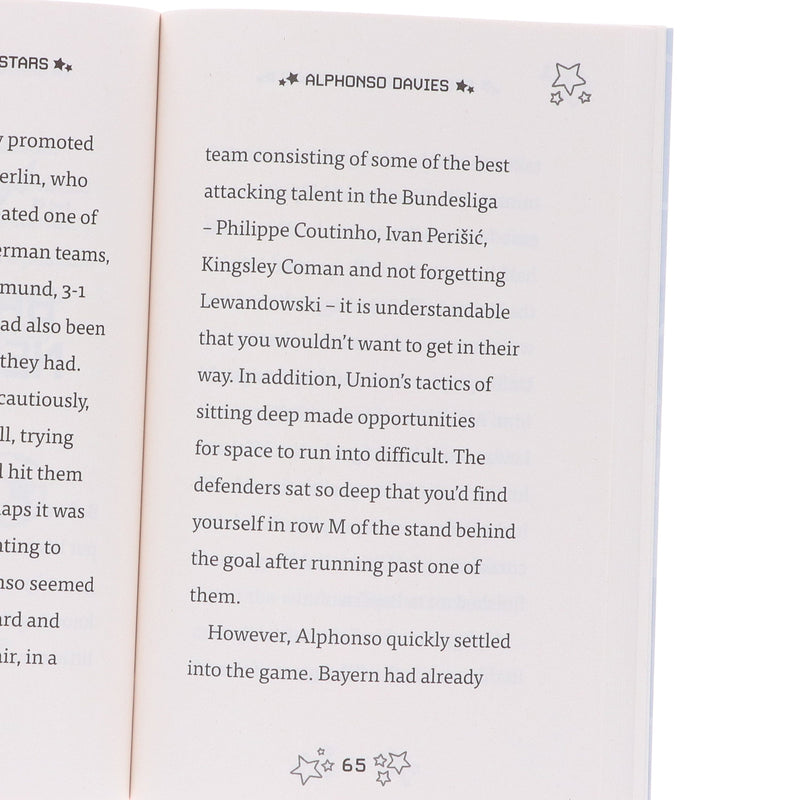 STARS
promoted
erlin, who
ated one of
erman teams,
mund, 3-1
ad also been
they had.
cautiously,
ll, trying
hit them
aps it was
ting to
nso seemed
ard and
air, in a
ALPHONSO DAVIES
team consisting of some of the best
attacking talent in the Bundesliga
– Philippe Coutinho, Ivan Perišić,
Kingsley Coman and not forgetting
Lewandowski – it is understandable
that you wouldn't want to get in their
way. In addition, Union's tactics of
sitting deep made opportunities
for space to run into difficult. The
defenders sat so deep that you'd find
yourself in row M of the stand behind
the goal after running past one of
them.
However, Alphonso quickly settled
into the game. Bayern had already
65